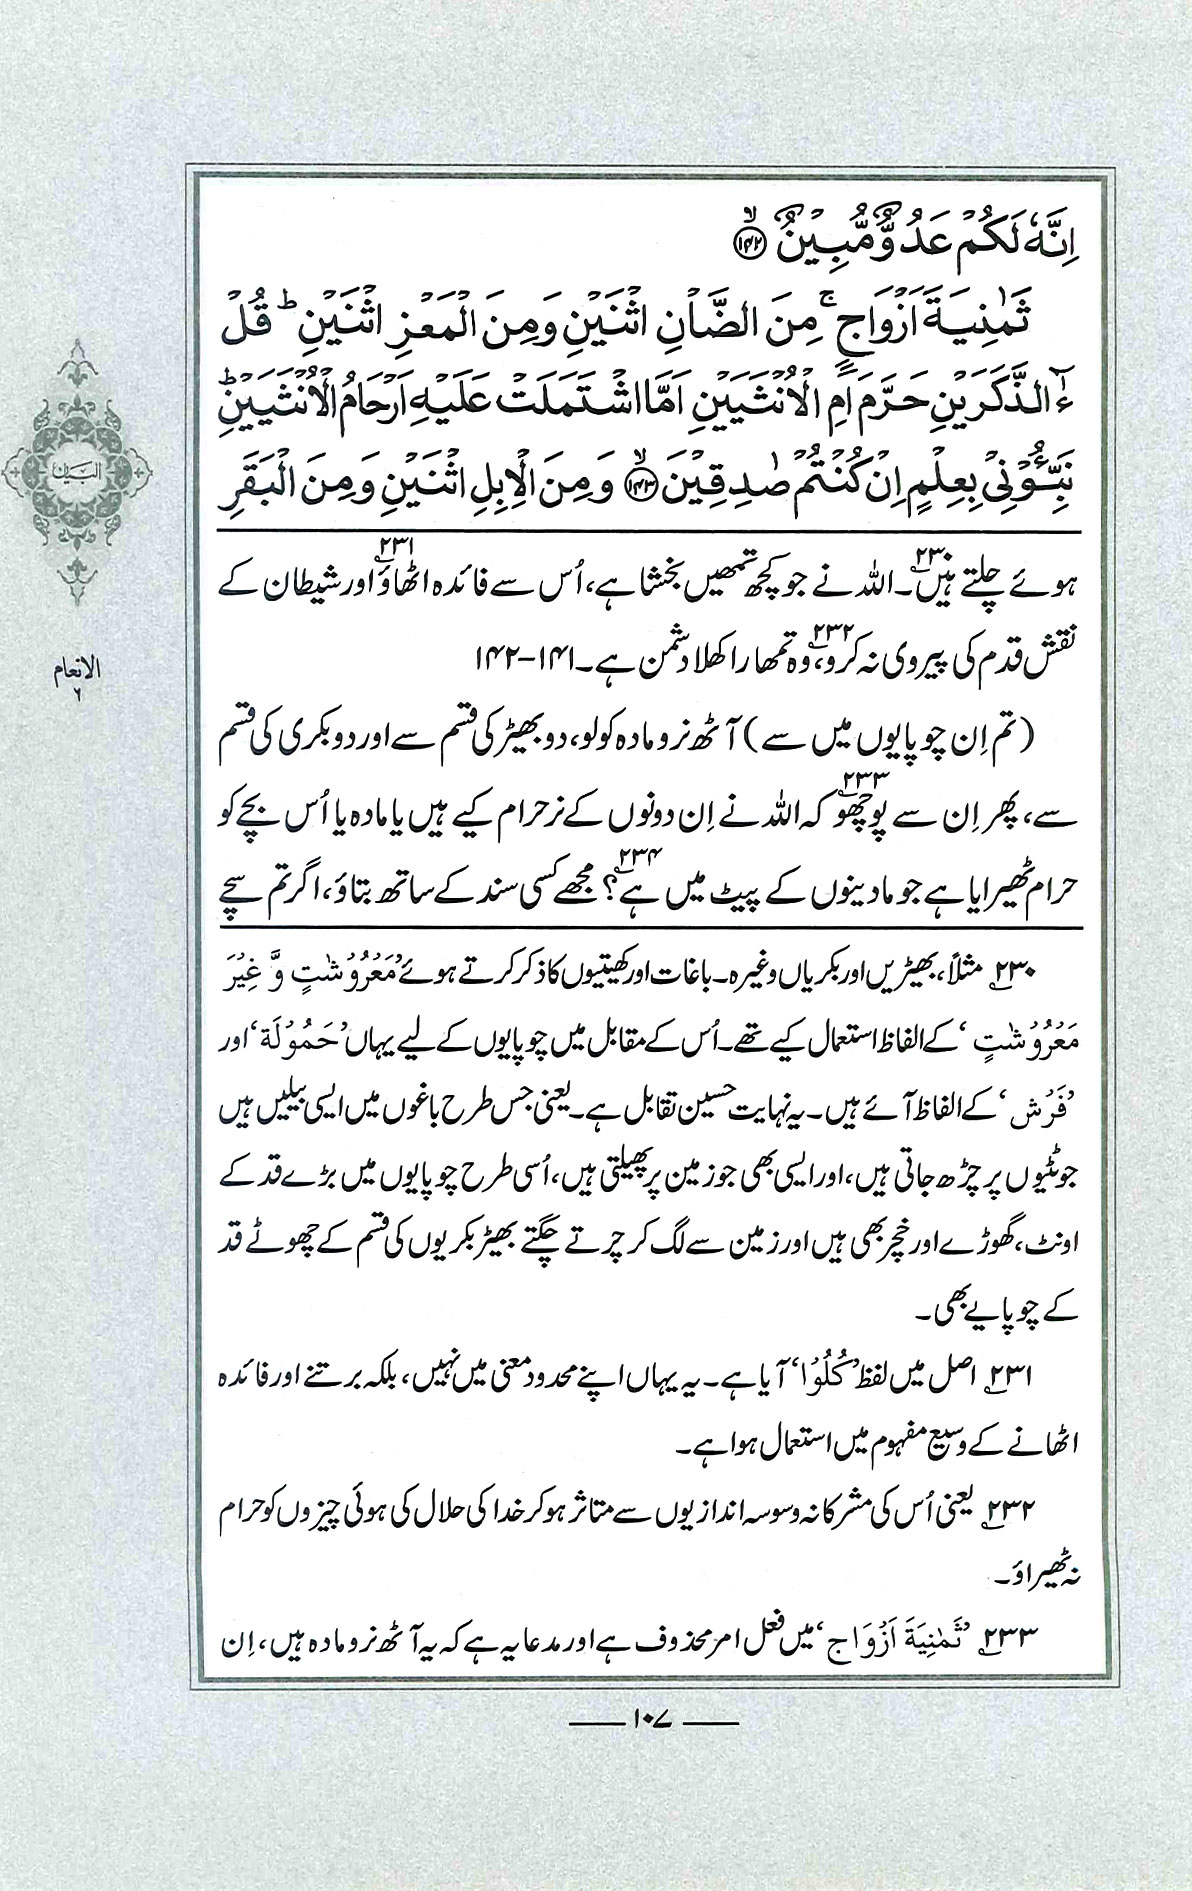 اِنَّهٗ لَكُمْ عَدُوٌّ مُّبِيْنٌ ﴿۱۴۲﴾
ثَمٰنِيَةَ اَزْوَاجٍ ۚ مِنَ الضَّاْنِ اثْنَيْنِ وَمِنَ الْمَعْزِ اثْنَيْنِ ؕ قُلْ
ءٰٓالذَّكَرَيْنِ حَرَّمَ اَمِ الْاُنْثَيَيْنِ اَمَّا اشْتَمَلَتْ عَلَيْهِ اَرْحَامُ الْاُنْثَيَيْنِ ؕ
نَبِّـُٔوْنِيْ بِعِلْمٍ اِنْ كُنْتُمْ صٰدِقِيْنَ ﴿۱۴۳﴾ وَمِنَ الْاِبِلِ اثْنَيْنِ وَمِنَ الْبَقَرِ
ہوئے چلتے ہیں۲۳۰۔ اللہ نے جو کچھ تمھیں بخشا ہے، اُس سے فائدہ اٹھاؤ۲۳۱ اور شیطان کے
نقش قدم کی پیروی نہ کرو۲۳۲، وہ تمھارا کھلا دشمن ہے۔ ۱۴۱-۱۴۲
(تم اِن چوپایوں میں سے) آٹھ نر و مادہ کو لو، دو بھیڑ کی قسم سے اور دو بکری کی قسم
سے، پھر اِن سے پوچھو۲۳۳ کہ اللہ نے اِن دونوں کے نر حرام کیے ہیں یا مادہ یا اُس بچے کو
حرام ٹھیرایا ہے جو مادینوں کے پیٹ میں ہے۲۳۴؟ مجھے کسی سند کے ساتھ بتاؤ، اگر تم سچے
۲۳۰ مثلاً، بھیڑیں اور بکریاں وغیرہ۔ باغات اور کھیتیوں کا ذکر کرتے ہوئے ’مَعْرُوْشٰتٍ وَّ غَيْرَ
مَعْرُوْشٰتٍ‘ کے الفاظ استعمال کیے تھے۔ اُس کے مقابل میں چوپایوں کے لیے یہاں ’حَمُوْلَة‘ اور
’فَرْش‘ کے الفاظ آئے ہیں۔ یہ نہایت حسین تقابل ہے۔ یعنی جس طرح باغوں میں ایسی بیلیں ہیں
جو ٹٹیوں پر چڑھ جاتی ہیں، اور ایسی بھی جو زمین پر پھیلتی ہیں، اُسی طرح چوپایوں میں بڑے قد کے
اونٹ، گھوڑے اور خچر بھی ہیں اور زمین سے لگ کر چرتے چگتے بھیڑ بکریوں کی قسم کے چھوٹے قد
کے چوپایے بھی۔
۲۳۱ اصل میں لفظ ’كُلُوْا‘ آیا ہے۔ یہ یہاں اپنے محدود معنی میں نہیں، بلکہ برتنے اور فائدہ
اٹھانے کے وسیع مفہوم میں استعمال ہوا ہے۔
۲۳۲ یعنی اُس کی مشرکانہ وسوسہ اندازیوں سے متاثر ہو کر خدا کی حلال کی ہوئی چیزوں کو حرام
نہ ٹھیراؤ۔
۲۳۳ ’ثَمٰنِيَةَ اَزْوَاج‘ میں فعل امر محذوف ہے اور مدعا یہ ہے کہ یہ آٹھ نر و مادہ ہیں، اِن
البیان
الانعام
۶
۱۰۷